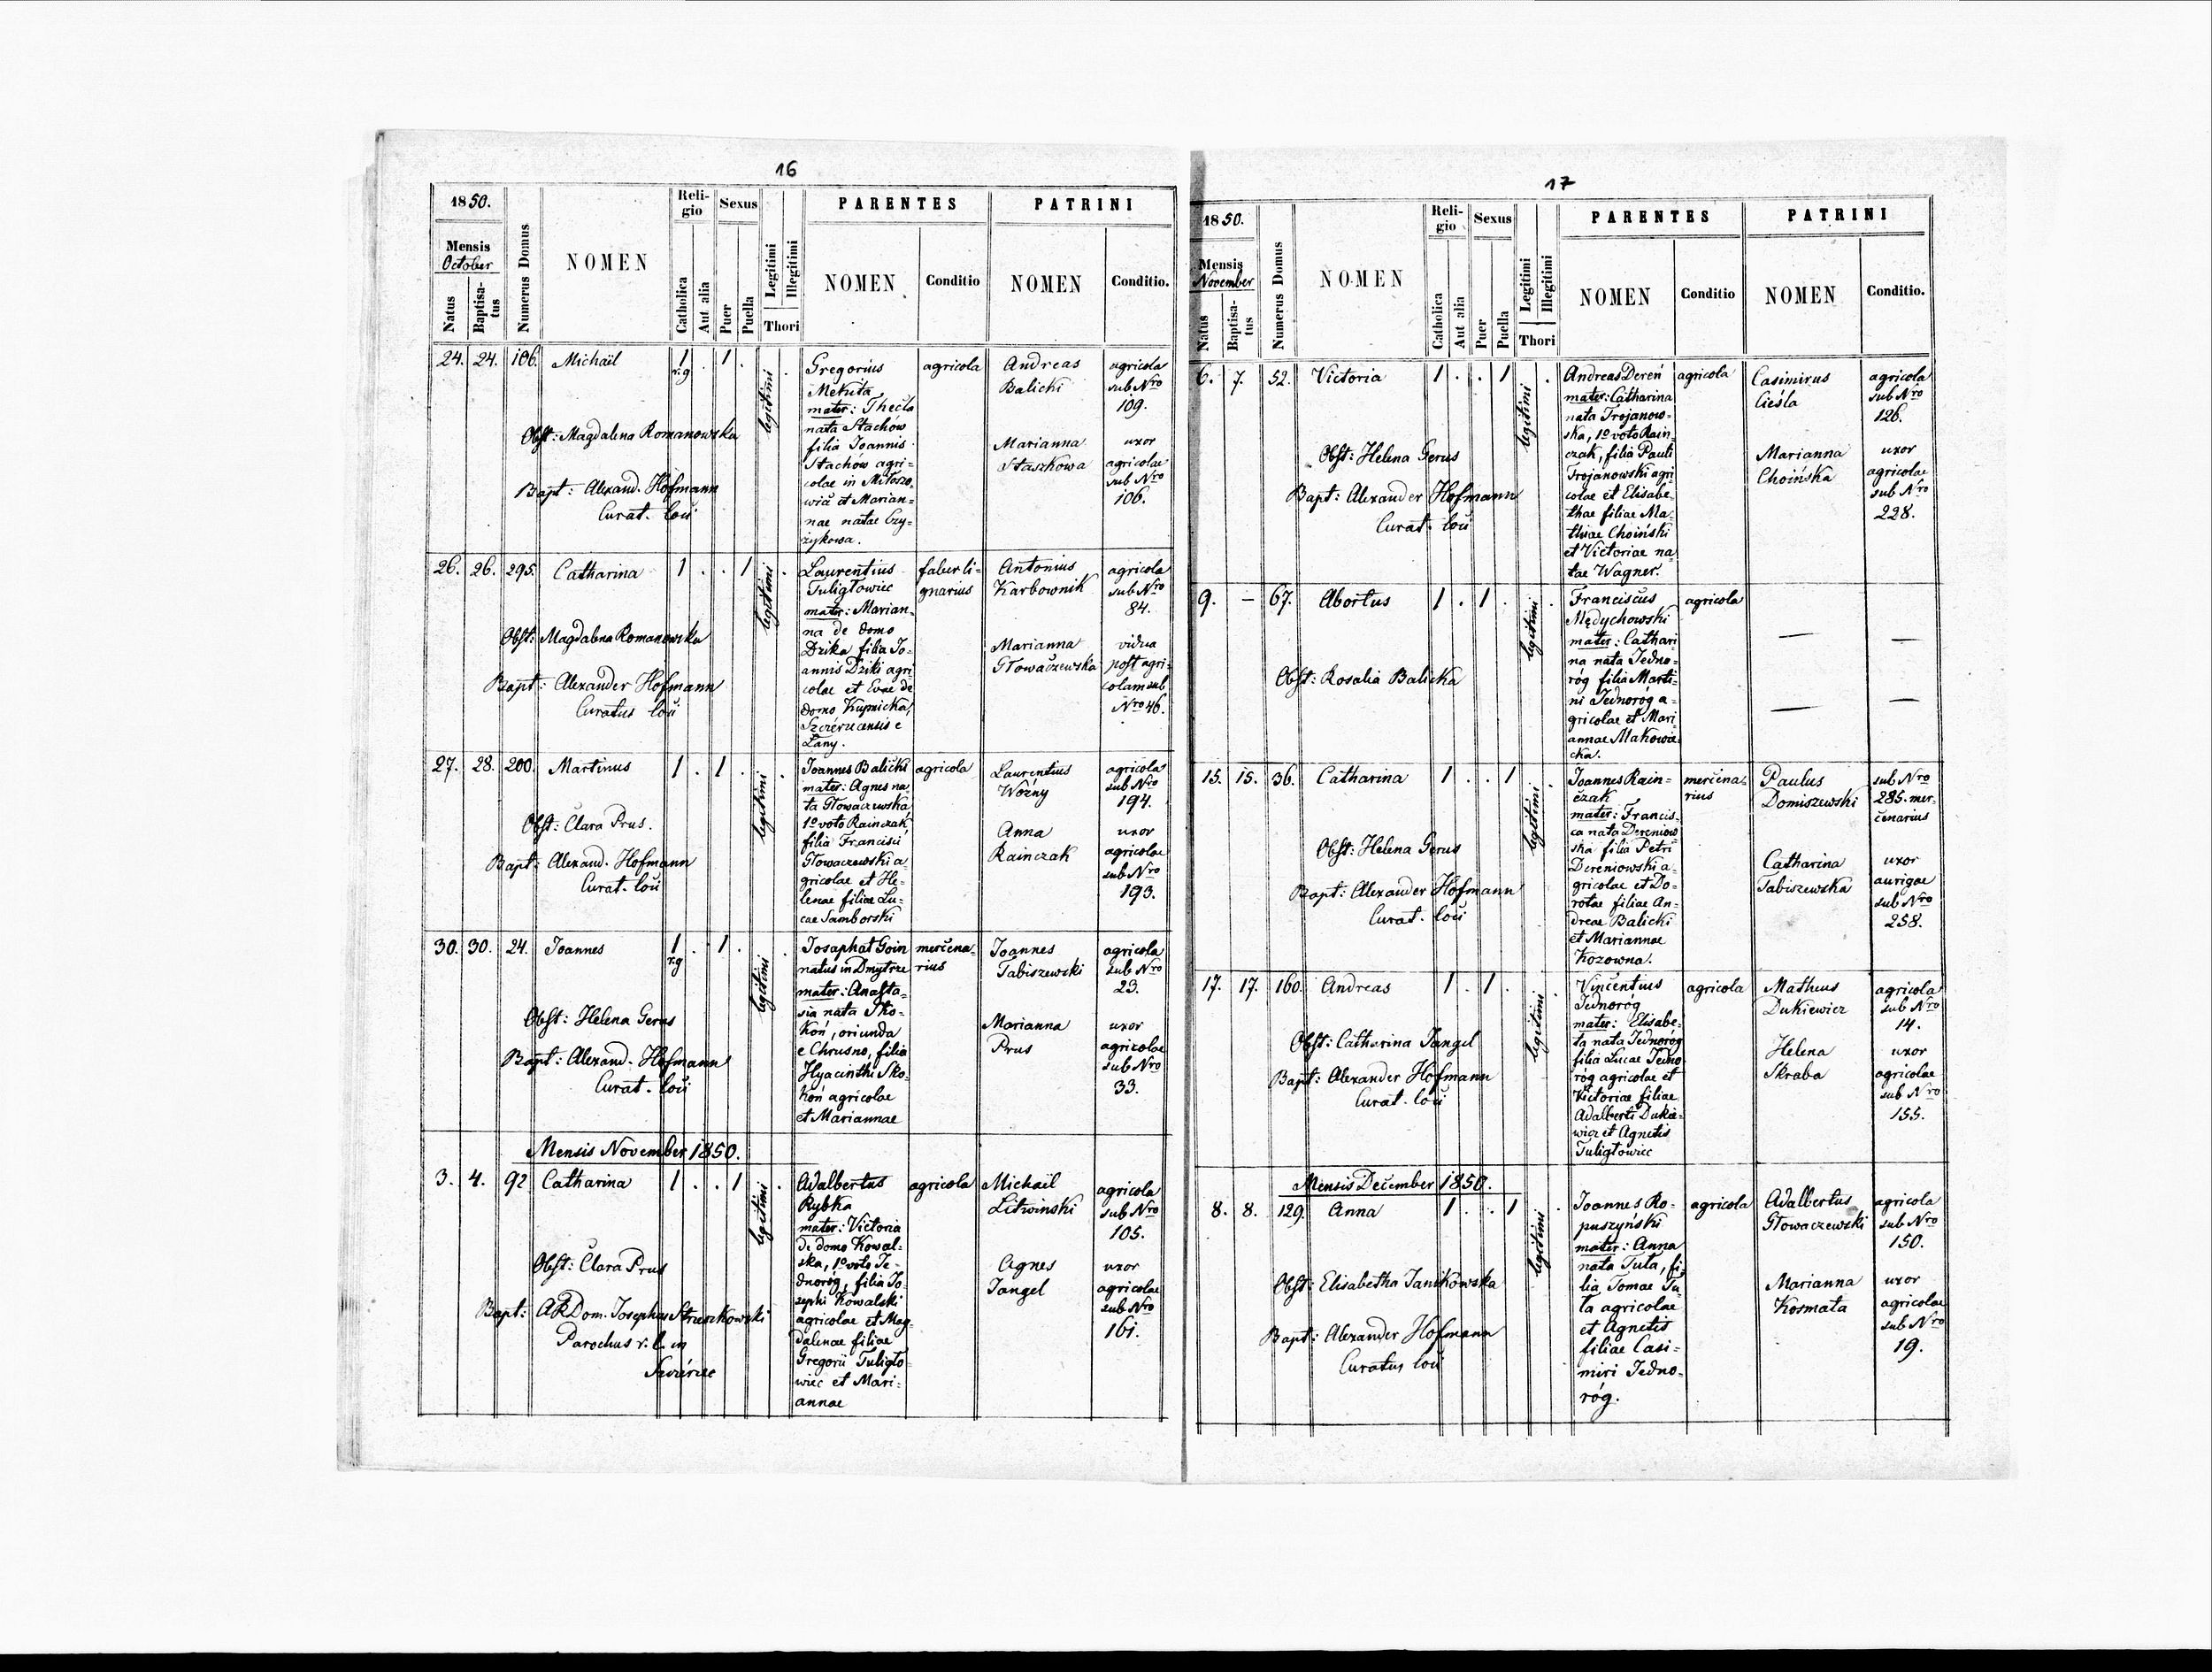 16
1850.
Mensis
October
Natus
Baptisa-
tus
Numerus Domus
NOMEN
Reli-
gio
Catholica
Aut alia
Sexus
Puer
Puella
Legitimi
Illegitimi
Thori
PARENTES
NOMEN
Conditio
PATRINI
NOMEN
Conditio.
24. 24. 106. Michaël 1 r.g . 1 . legitimi .
Obst: Magdalena Romanowska
Bapt: Alexand. Hofmann
Curat. loci
Gregorius
Mekuta
mater: Thecla
nata Stachów
filia Joannis
Stachów agri=
colae in Miłoszo=
wice et Marian=
nae natae Czy=
żykowa.
agricola
Andreas
Balicki
agricola
sub Nro
109.
Marianna
Staszkowa
uxor
agricolae
sub Nro
106.
26. 26. 295. Catharina 1 . . 1 legitimi .
Obst: Magdalena Romanowska
Bapt: Alexander Hofmann
Curatus loci
Laurentius
Tuligłowiec
mater: Marian=
na de domo
Dzika filia Jo=
annis Dziki agri=
colae et Evae de
domo Kupnicka,
Szczérzecensis e
Łany.
faber li=
gnarius
Antonius
Karbownik
agricola
sub Nro
84.
Marianna
Głowaczewska
vidua
post agri=
colam sub
Nro 46.
27. 28. 200. Martinus 1 . 1 . legitimi .
Obst: Clara Prus.
Bapt: Alexand. Hofmann
Curat. loci
Joannes Balicki
mater: Agnes na=
ta Głowaczewska
1º voto Rainczak
filia Francisci
Głowaczewski a=
gricolae et He=
lenae filiae Lu=
cae Samborski
agricola
Laurentius
Woźny
agricola
sub Nro
194.
Anna
Rainczak
uxor
agricolae
sub Nro
193.
30. 30. 24. Joannes 1 r.g . 1 . legitimi .
Obst: Helena Gerus
Bapt: Alexand. Hofmann
Curat. loci
Josaphat Goin
natus in Dmytrze
mater: Anasta=
sia nata Sko=
koń, oriunda
e Chrusno, filia
Hyacinthi Sko=
koń agricolae
et Mariannae
mercena=
rius
Joannes
Tabiszewski
agricola
sub Nro
23.
Marianna
Prus
uxor
agricolae
sub Nro
33.
Mensis November 1850.
3. 4. 92 Catharina 1 . . 1 legitimi .
Obst: Clara Prus
Bapt: A.R.Dom. Josephus
Parochus r. l. in
Adalbertus
Rybka
mater: Victoria
de domo Kowal=
ska, 1º voto Je=
dnoróg, filia Jo=
sephi Kowalski
agricolae et Mag=
dalenae filiae
Gregorii Tuligło=
wiec et Mari=
annae
agricola
Michaël
Litwinski
agricola
sub Nro
105.
Agnes
Jangel
uxor
agricolae
sub Nro
161.
17
1850.
Mensis
November
Natus
Baptisa-
tus
Numerus Domus
NOMEN
Reli-
gio
Catholica
Aut alia
Sexus
Puer
Puella
Legitimi
Illegitimi
Thori
PARENTES
NOMEN
Conditio
PATRINI
NOMEN
Conditio.
6. 7. 52. Victoria 1 . . 1 legitimi .
Obst: Helena Gerus
Bapt: Alexander Hofmann
Curat. loci
Andreas Dereń
mater: Catharina
nata Trojanow=
ska, 1º voto Rain=
czak, filia Pauli
Trojanowski agri
colae et Elisabe=
thae filiae Ma=
thiae Choiński
et Victoriae na
tae Wagner.
agricola
Casimirus
Cieśla
agricola
sub Nro
126.
Marianna
Choińska
uxor
agricolae
sub Nro
228.
9. – 67. Abortus 1 . 1 . legitimi .
Obst: Rosalia Balicka
Franciscus
Mędychowski
mater: Cathari
na nata Jedno=
róg filia Marti=
ni Jednoróg a=
gricolae et Mari
annae Makowie
cka.
agricola
— —
— —
15. 15. 36. Catharina 1 . . 1 legitimi .
Obst: Helena Gerus
Bapt: Alexander Hofmann
Curat. loci
Joannes Rain=
czak
mater: Francis=
ca nata Dereniow
ska filia Petri
Dereniowski a=
gricolae et Do=
rotae filiae An=
dreae Balicki
et Mariannae
Kozowna.
mercena=
rius
Paulus
Domiszewski
sub Nro
285. mer=
cenarius
Catharina
Tabiszewska
uxor
aurigae
sub Nro
258.
17. 17. 160. Andreas 1 . 1 . legitimi .
Obst: Catharina Jangel
Bapt: Alexander Hofmann
Curat. loci
Vincentius
Jednoróg
mater: Elisabe=
ta nata Jednoróg
filia Lucae Jedno
róg agricolae et
Victoriae filiae
Adalberti Dukie=
wicz et Agnetis
Tuligłowiec
agricola
Matheus
Dukiewicz
agricola
sub Nro
14.
Helena
Skraba
uxor
agricolae
sub Nro
155.
Mensis December 1850.
8. 8. 129. Anna 1 . . 1 legitimi .
Obst: Elisabetha Janikowska
Bapt: Alexander Hofmann
Curatus loci
Joannes Ro=
puszyński
mater: Anna
nata Tuta, fi=
lia Tomae Tu=
ta agricolae
et Agnetis
filiae Casi=
miri Jedno=
róg.
agricola
Adalbertus
Głowaczewski
agricola
sub Nro
150.
Marianna
Kosmata
uxor
agricolae
sub Nro
19.